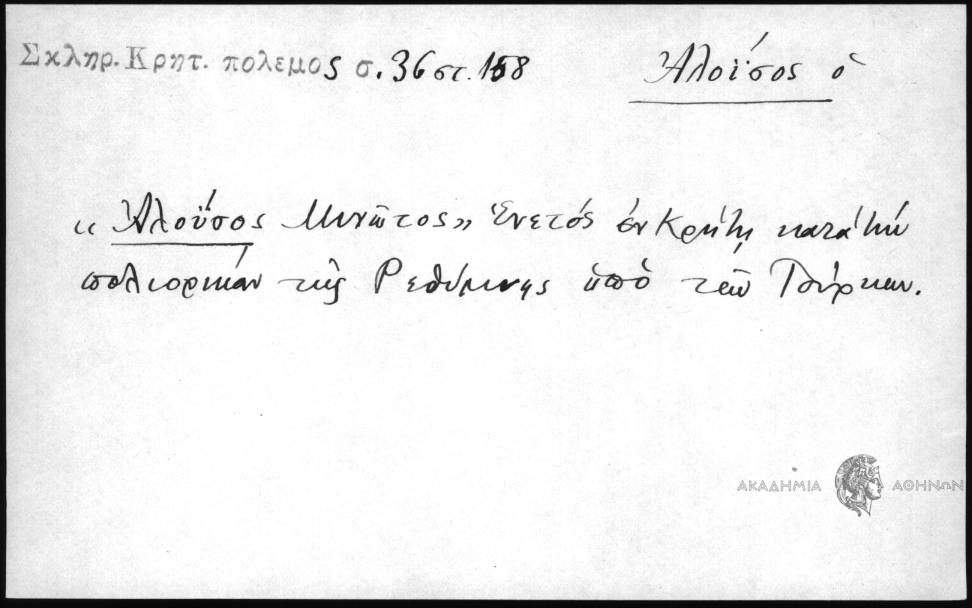 Σκληρ. Κρητ. πολεμος σ. 36 στ. 158
Ἀλοΐσος ὁ
« Ἀλοΰσος Μινῶτος» Ἑνετός ἐν Κρήτῃ κατά τήν
πολιορκίαν τῆς Ρεθύμνης ὑπό τῶν Τούρκων.
ΑΚΑΔΗΜΙΑ ΑΘΗΝΩΝ